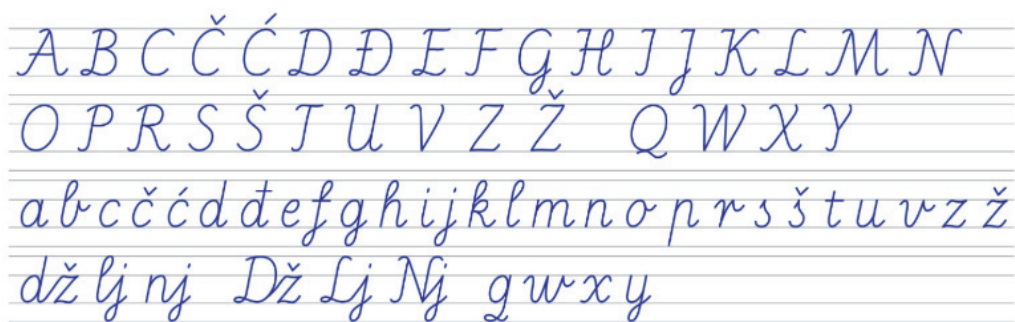 A B C Č Ć D Đ E F G H I J K L M N
O P R S Š T U V Z Ž Q W X Y
a b c č ć d đ e f g h i j k l m n o p r s š t u v z ž
dž lj nj Dž Lj Nj q w x y